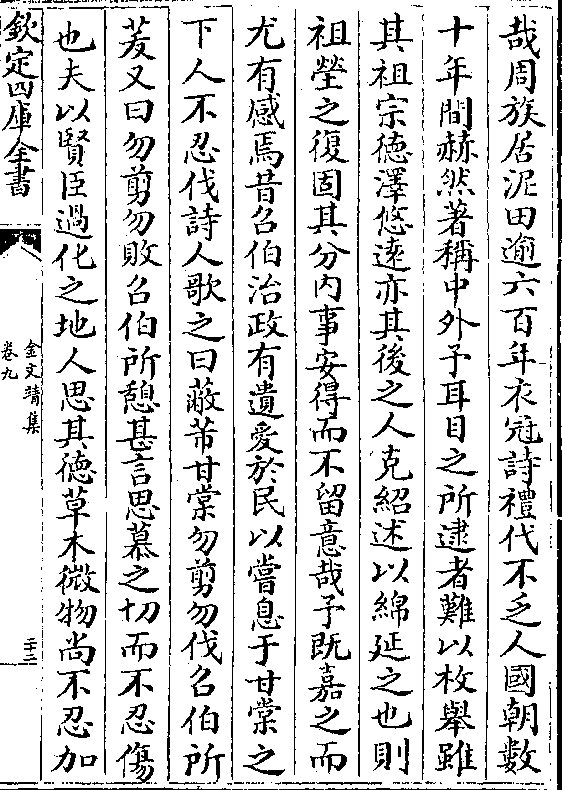 哉周族居泥田逾六百年衣冠詩禮代不乏人國朝數
十年間赫然著稱中外予耳目之所逮者難以枚舉雖
其祖宗德澤悠遠亦其後之人克紹述以綿延之也則
祖塋之復固其分内事安得而不留意哉予既嘉之而
尤有感焉昔召伯治政有遺愛於民以嘗息于甘棠之
下人不忍伐詩人歌之曰蔽芾甘棠勿剪勿伐召伯所
茇又曰勿剪勿敗召伯所憩甚言思慕之切而不忍傷
也夫以賢臣過化之地人思其德草木微物尚不忍加
欽定四庫全書
金文靖集
卷九
二十二